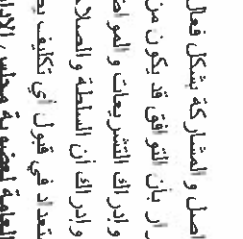 اصل و المشاركة بشكل فعال
ار بأن التوافق قد يكون من
و إدراك التشريعات و المو
و إدراك أن السلطة و الصلا
تعداد في قبول أي تكليف
العامة لعضوية مجلس الإدا